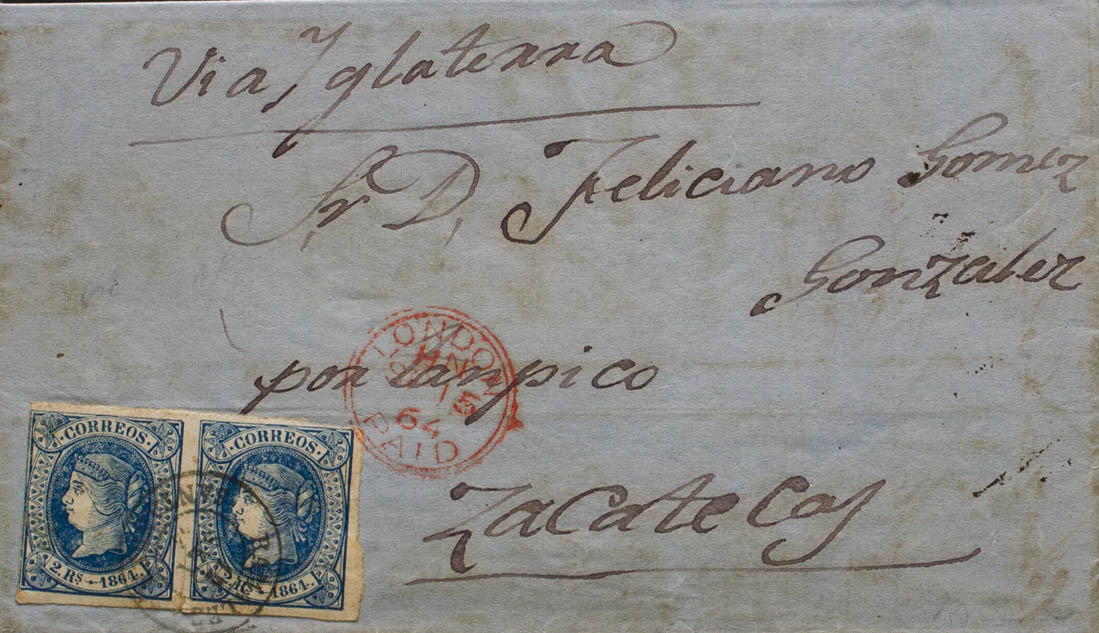 Via Yglaterra
Sr. D. Feliciano Gomez
Gonzalez
por tanpico
Zacatecas
LONDON
15
64
PAID
CORREOS
2. Rs 1864.
CORREOS
1864.